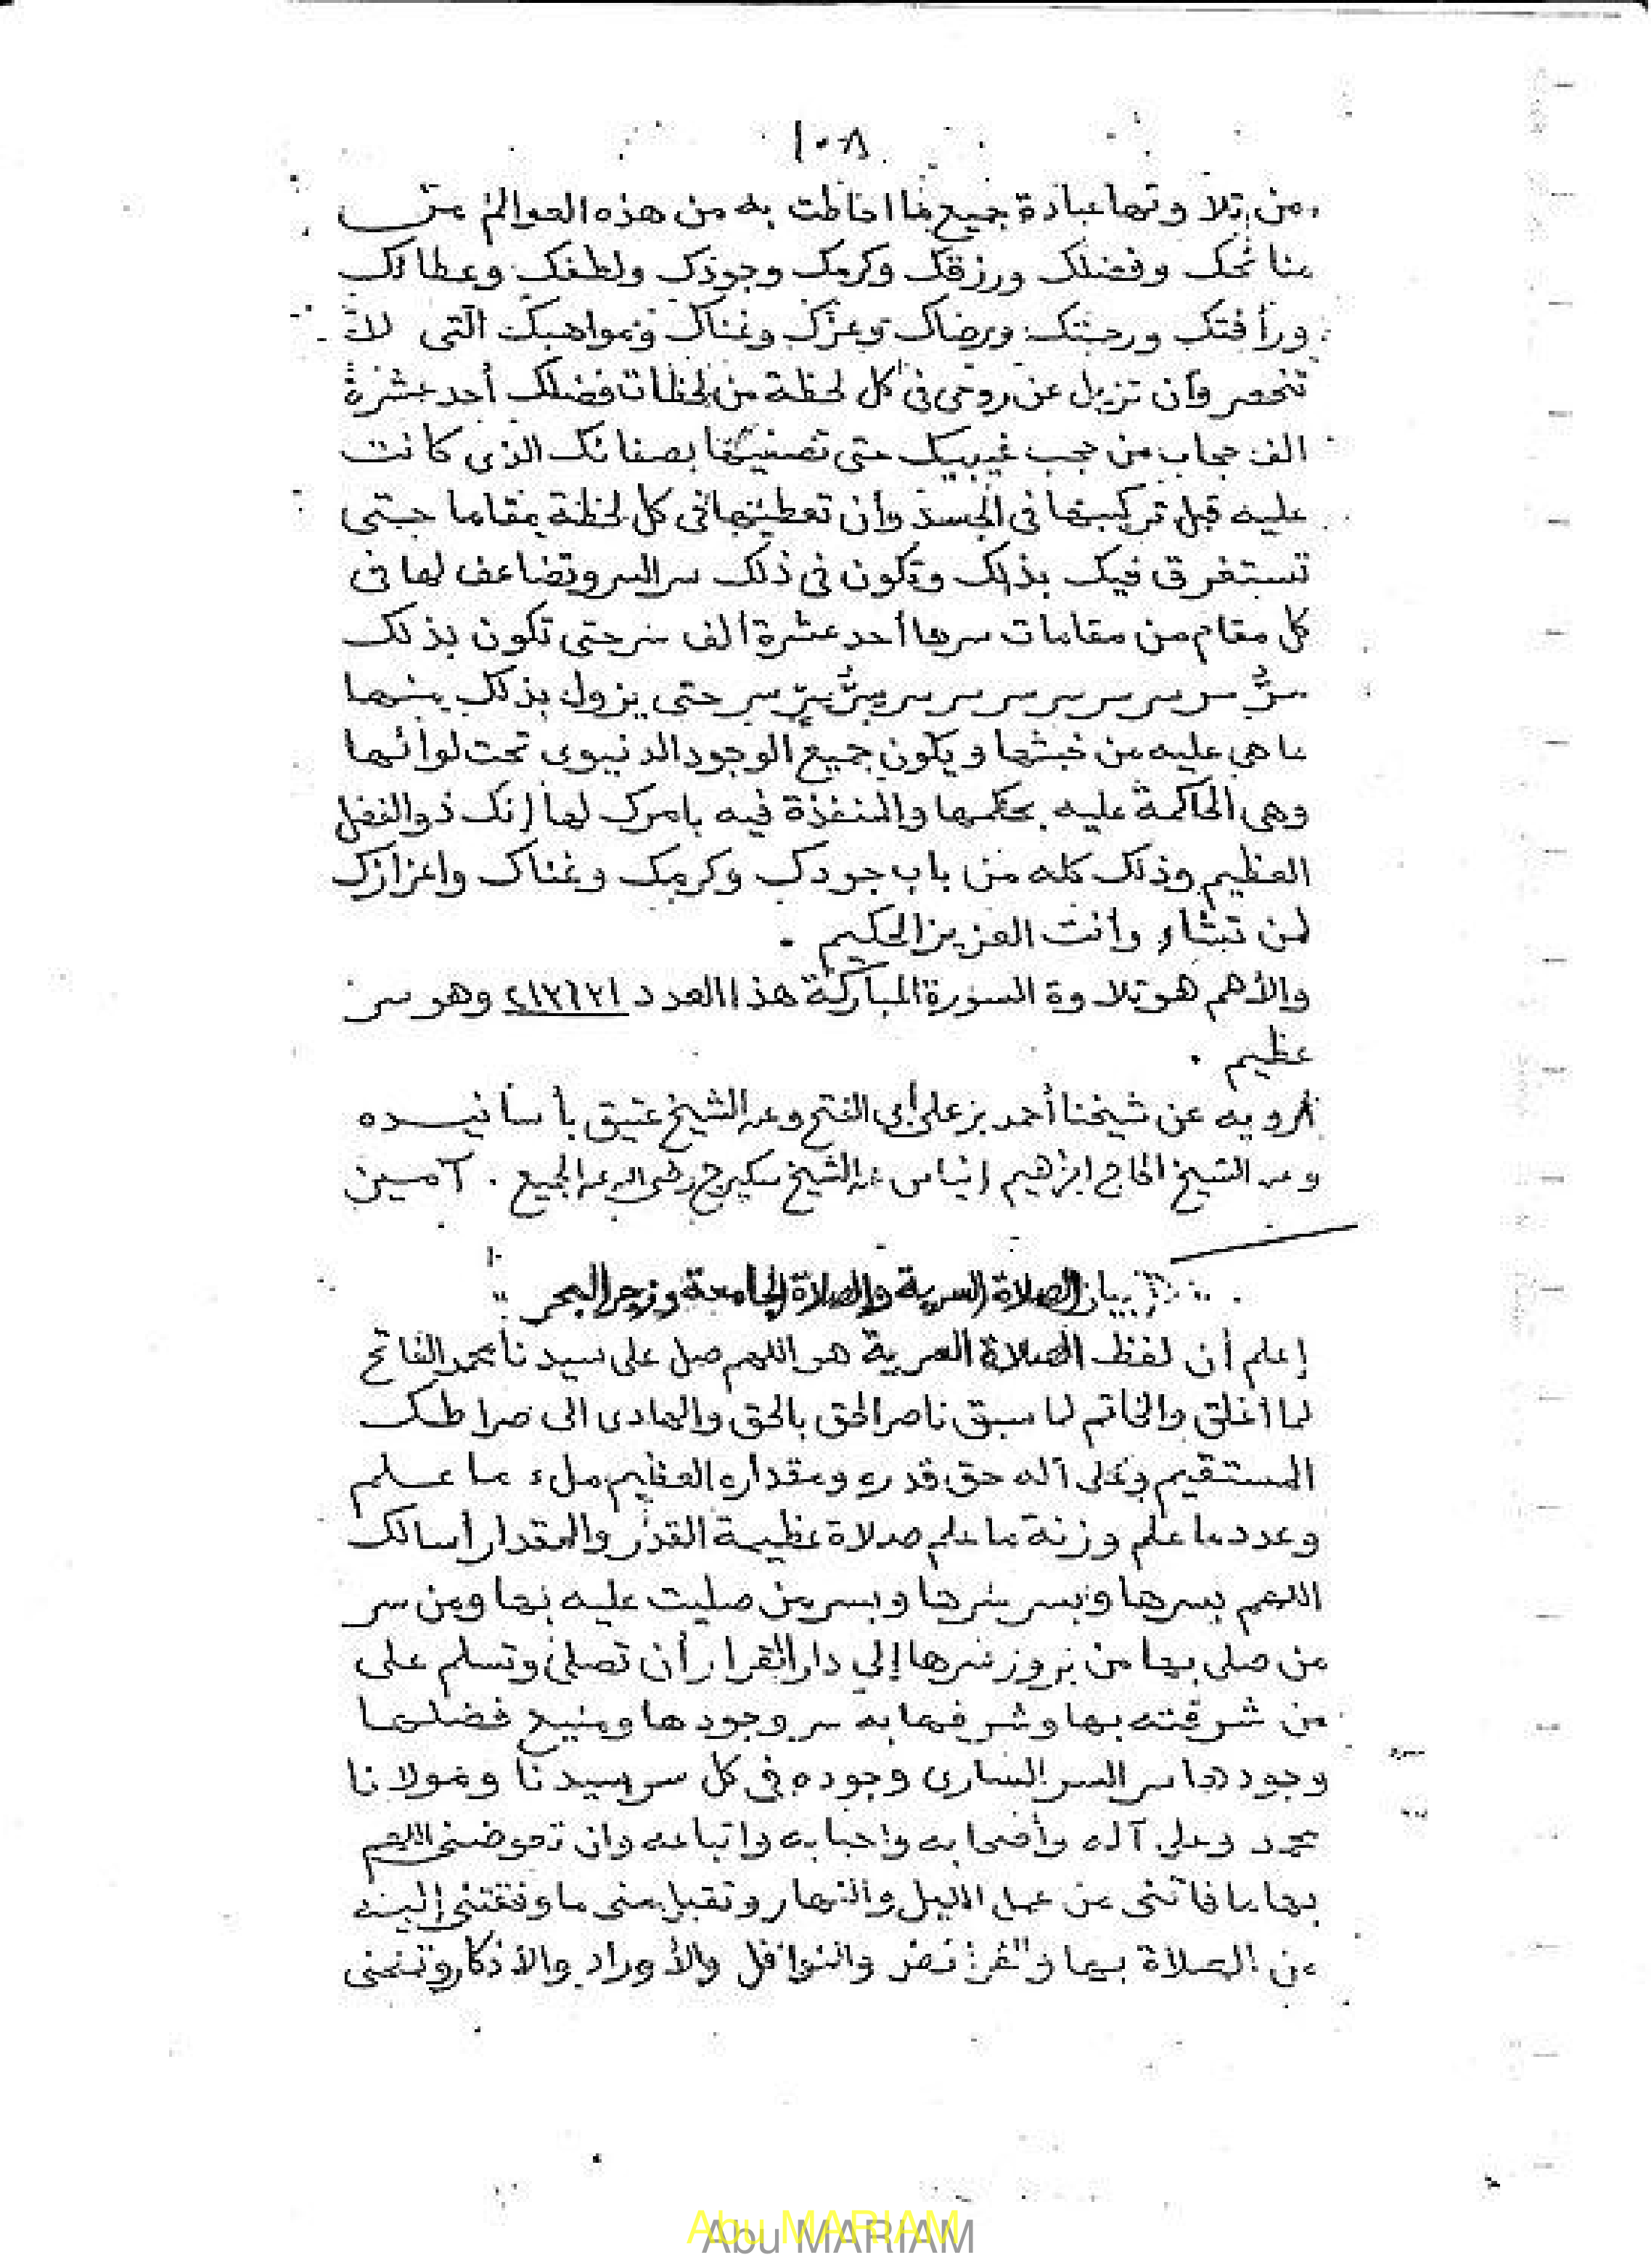 ١٠٨
من تلاوتها عبادة جميع ما احاطت به من هذه العوالم من
منائحك وفضلك ورزقك وكرمك وجودك ولطفك وعطائك
ورأفتك ورحمتك ورضاك وعزك وغناك ومواهبك التى لا
تنحصر وأن تزيل عن روحى فى كل لحظة من لحظات فضلك أحد عشرة
الف حجاب من حجب غيبيك حتى تصفيها بصفائك الذى كانت
عليه قبل تركيبها فى الجسد وأن تعطيها فى كل لحظة مقاما حتى
تستغرق فيك بذلك وتكون فى ذلك سر السر وتضاعف لها فى
كل مقام من مقامات سرها أحد عشرة ألف سر حتى تكون بذلك
سرُّ سر سر سر سر سر سر سرُّ سرّ سر حتى يزول بذلك منها
ما هى عليه من خبثها ويكون جميع الوجود الدنيوى تحت لوائها
وهى الحاكمة عليه بحكمها والمنفذة فيه بامرك لها إنك ذو الفضل
العظيم وذلك كله من باب جودك وكرمك وغناك واعزازك
لمن تشاء وأنت العزيز الحكيم .
والأهم هو تلاوة السورة المباركة هذا العدد وهو سر
عظيم .
أرويه عن شيخنا أحمد بن على أبى الفتح وعن الشيخ عتيق بأسانيده
وعن الشيخ الحاج ابراهيم إنياس عن الشيخ سكيرج رضى الله عن الجميع . آمين
بيان الصلاة السرية والصلاة الجامعة وزجر البحر
إعلم أن لفظ الصلاة السرية هو اللهم صل على سيدنا محمد الفاتح
لما أغلق والخاتم لما سبق ناصر الحق بالحق والهادى الى صراطك
المستقيم وعلى آله حق قدره ومقداره العظيم ملء ما علم
وعدد ما علم وزنة ما علم صلاة عظيمة القدر والمقدار أسالك
اللهم بسرها وبسر سرها وبسر من صليت عليه بها ومن سر
من صلى بها من بروز سرها إلي دار القرار أن تصلى وتسلم على
من شرفته بها وشرفها به سر وجودها ومنبع فضلها
وجودها سر السر السارى وجوده فى كل سر سيدنا ومولانا
محمد وعلى آله وأصحابه واحبابه واتباعه وان تعوضنى اللهم
بها ما فاتنى من عمل الليل والنهار وتقبل منى ما وفقتنى إليه
من الصلاة بها والفرائض والنوافل والأوراد والاذكار وتمنحنى
Abu MARIAM
Abu MARIAM